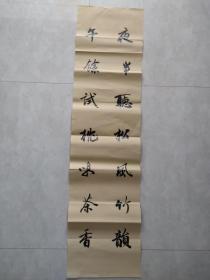 夜半聽松風竹韻
午餘試桃嗅茶香